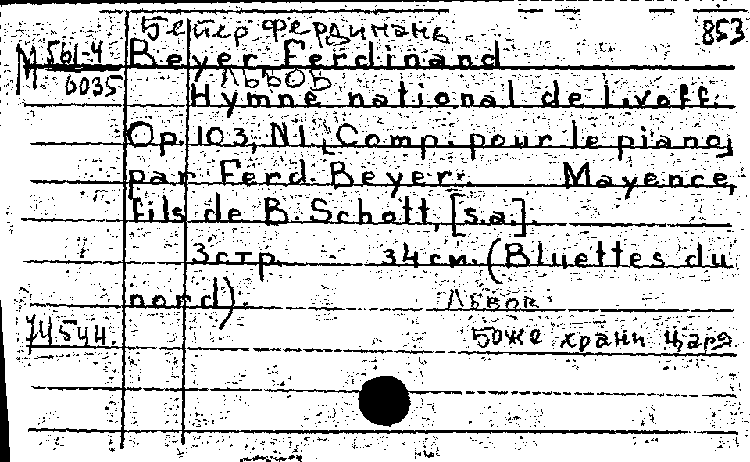 Бейер Фердинанд 853
М 561-4 Beyer Ferdinand
6035 Львов
Hymne national de Lvoff.
Op. 103, N1, [Comp. pour le piano,
par Ferd. Beyer. Mayence,
fils de B. Schott, [s.a.].
3 стр. 34 см. (Bluettes du
nord). Львов.
74544. Боже храни царя